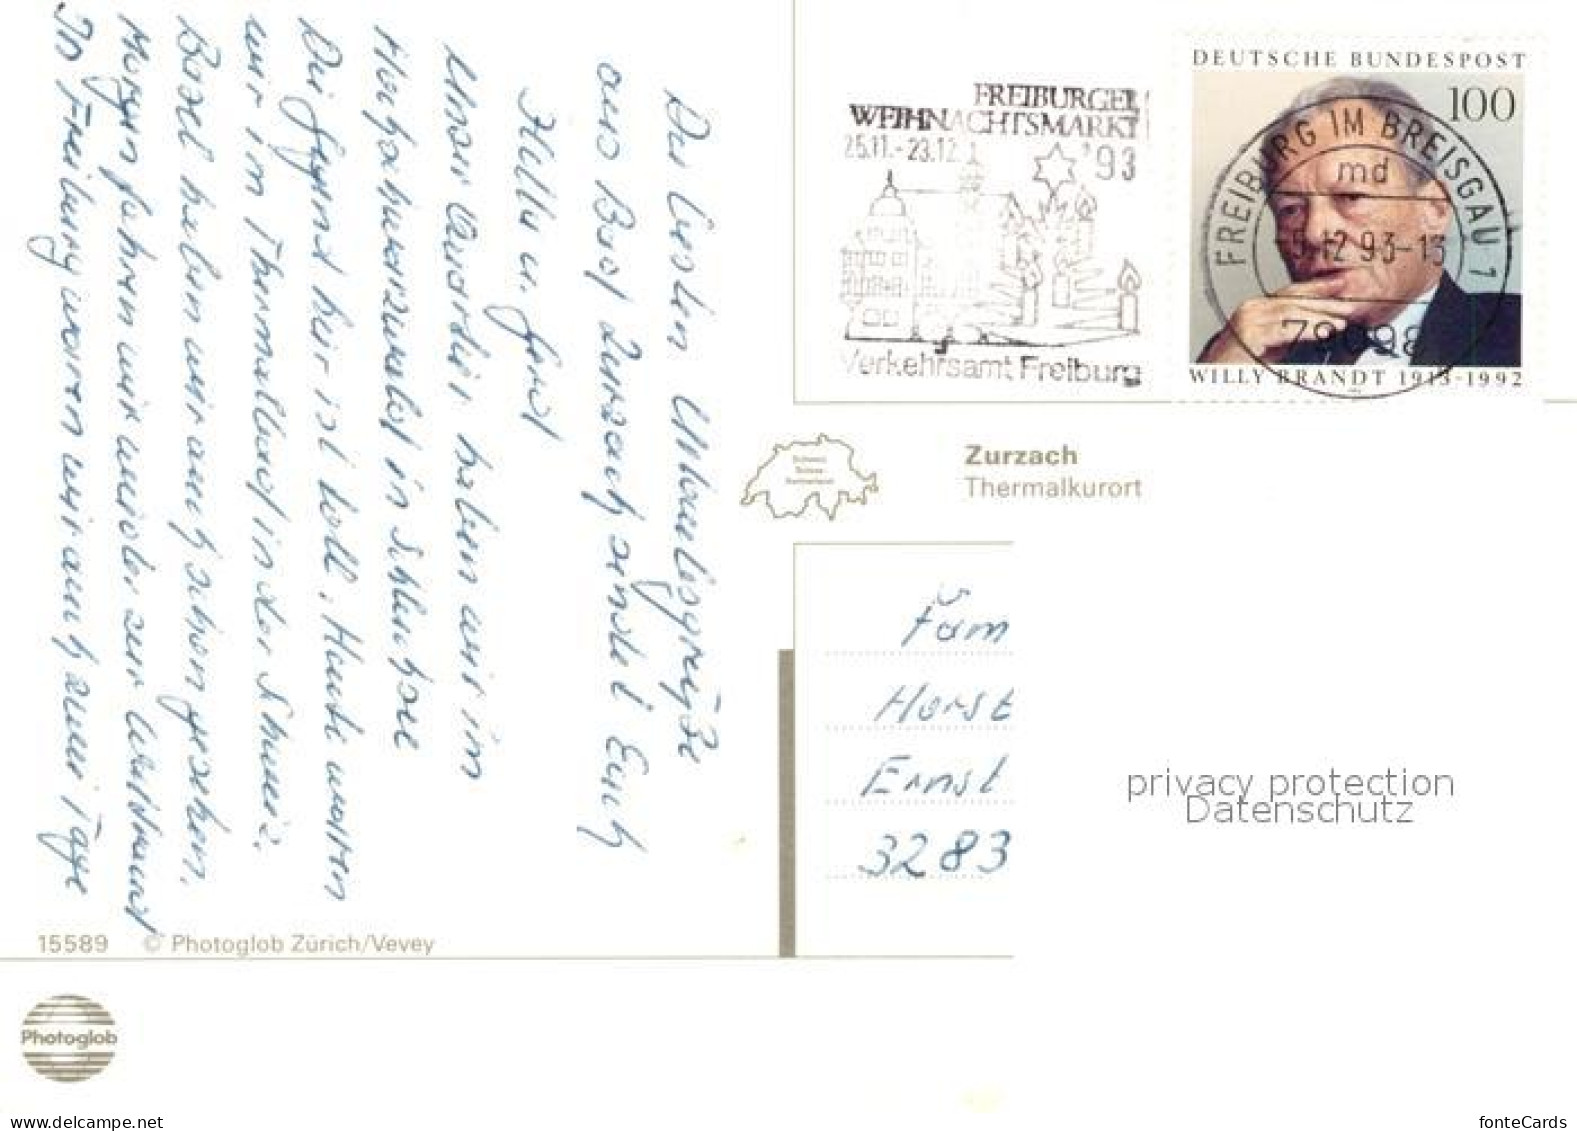 Die besten Urlaubsgrüße
aus Bad Zurzach sendet Euch
Hella u. Gerd
Unser Quartier haben wir im
Hochschwarzwald in Schluchsee
Die Gegend hier ist toll. Heute waren
wir im Thermalbad in der Schweiz.
Basel haben wir auch schon gesehen.
Morgen fahren wir wieder zur
In Freiburg waren wir auch zwei Tage
FREIBURGER
WEIHNACHTSMARKT
25.11.-23.12. '93
Verkehrsamt Freiburg
DEUTSCHE BUNDESPOST
100
FREIBURG IM BREISGAU 1
md
12.93-13
79098
WILLY BRANDT 1913-1992
Schweiz
Suisse
Switzerland
Zurzach
Thermalkurort
Fam
Horst
Ernst
3283
privacy protection
Datenschutz
15589 © Photoglob Zürich/Vevey
Photoglob
www.delcampe.net
fonteCards